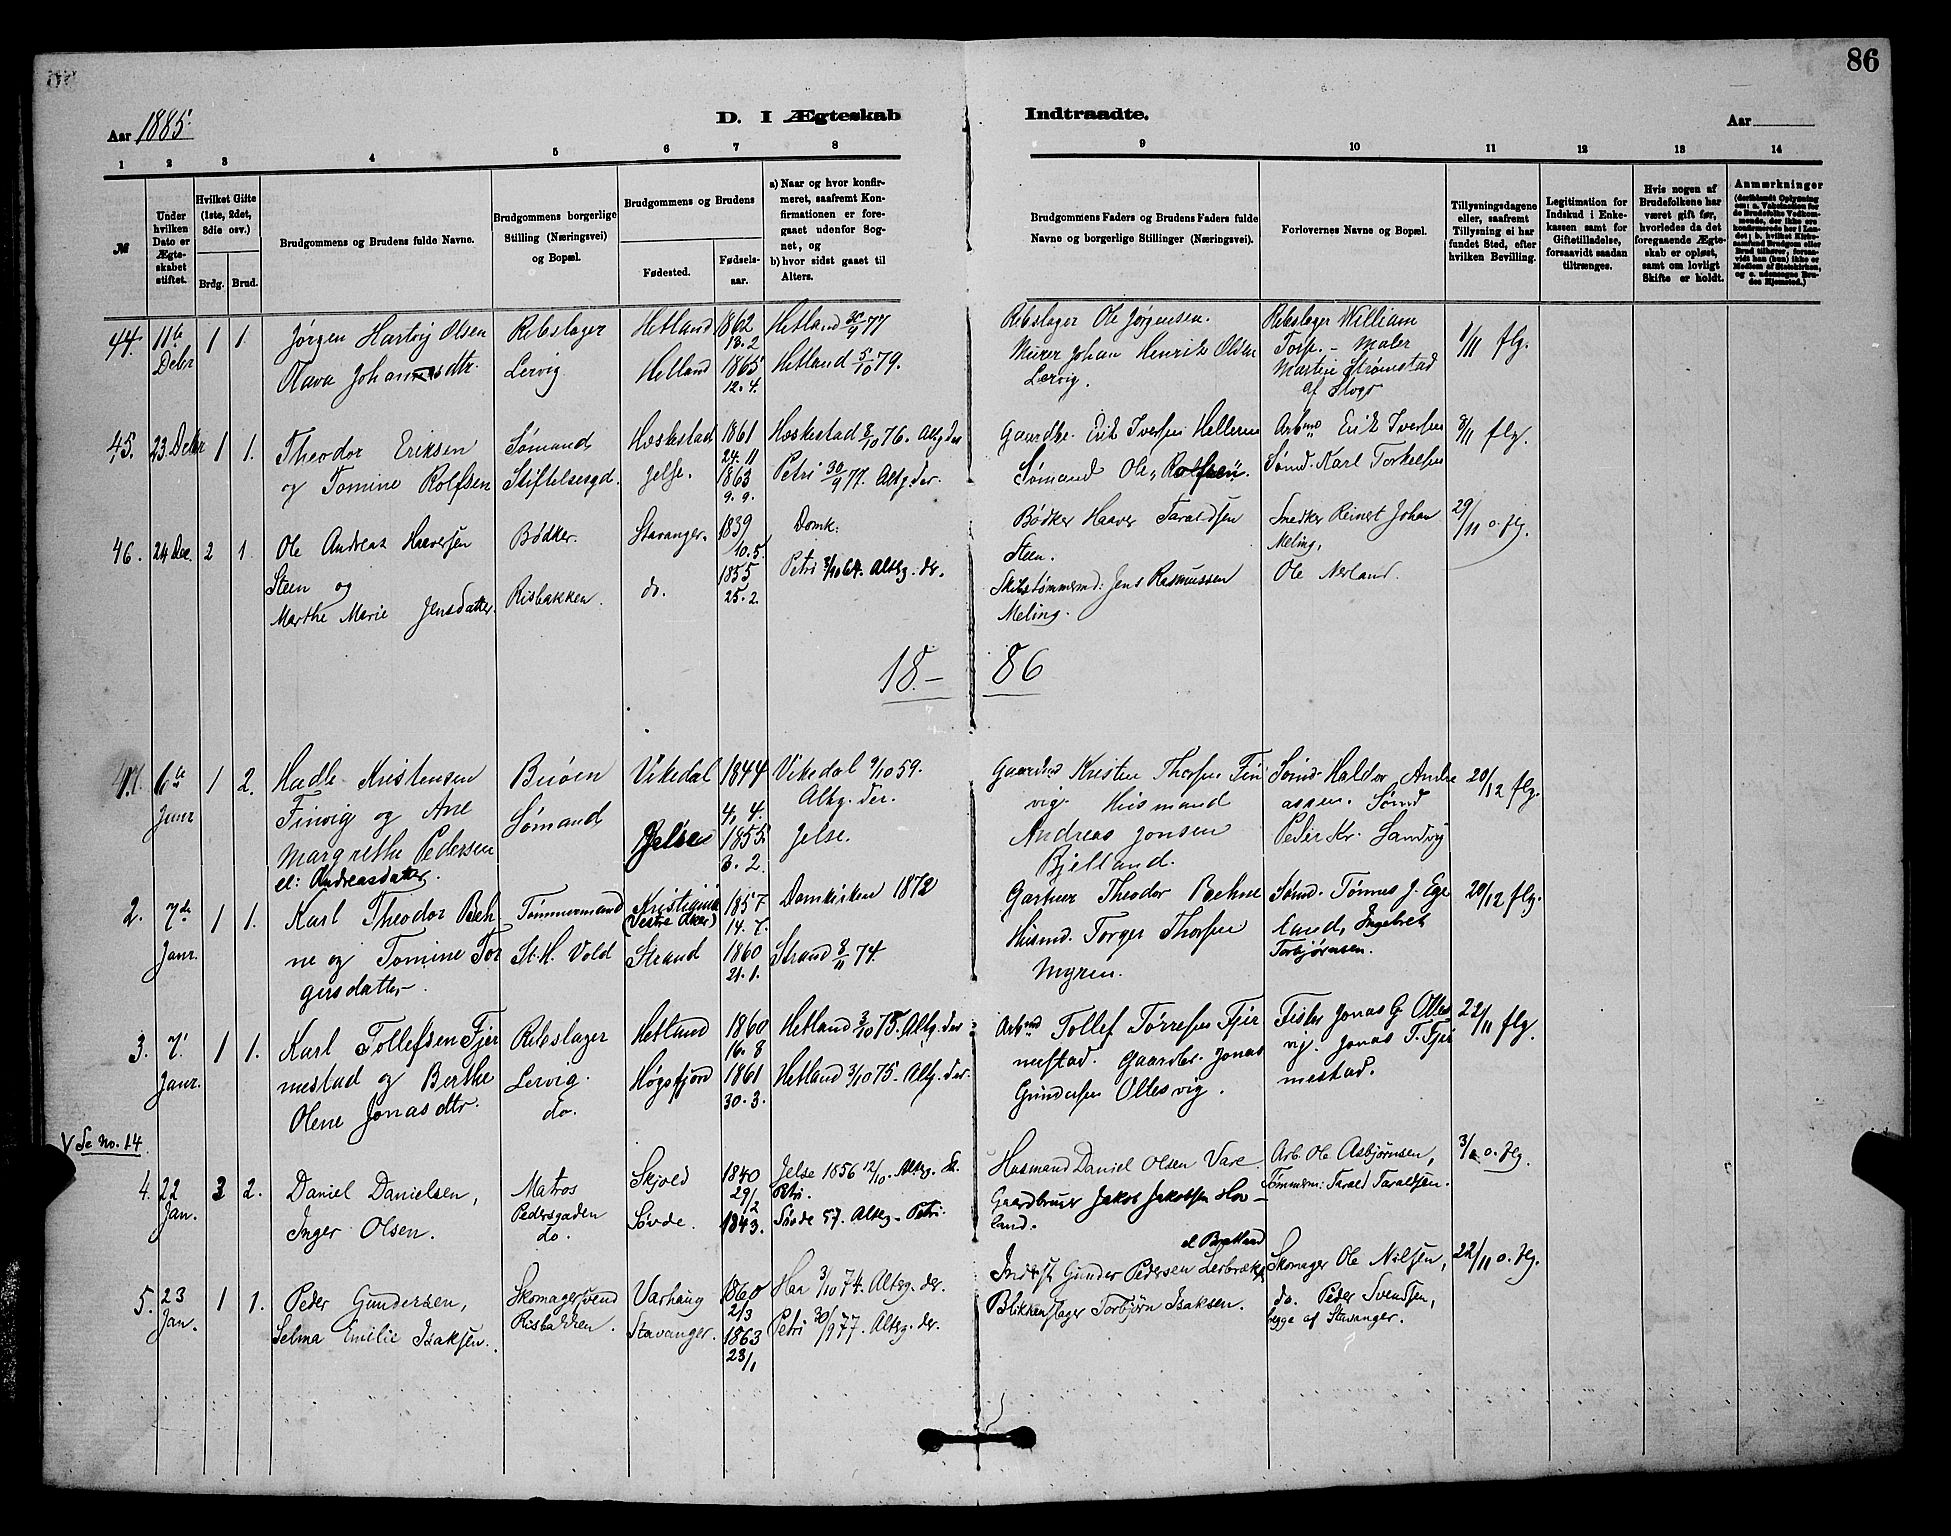 86
Aar 1885.
D. I Ægteskab Indtraadte.
Aar
1 2 3 4 5 6 7 8 9 10 11 12 13 14
№
Under hvilken Dato er Ægteskabet stiftet.
Hvilket Gifte (1ste, 2det, 3die osv.)
Brdg. Brud.
Brudgommens og Brudens fulde Navne.
Brudgommens borgerlige Stilling (Næringsvei) og Bopæl.
Brudgommens og Brudens
Fødested.
Fødselsaar.
a) Naar og hvor konfirmeret, saafremt Konfirmationen er foregaaet udenfor Sognet, og
b) hvor sidst gaaet til Alters.
Brudgommens Faders og Brudens Faders fulde Navne og borgerlige Stillinger (Næringsvei).
Forlovernes Navne og Bopæl.
Tillysningsdagene eller, saafremt Tillysning ei har fundet Sted, efter hvilken Bevilling.
Legitimation for Indskud i Enkekassen samt for Giftetilladelse, forsaavidt saadan tiltrænges.
Hvis nogen af Brudefolkene har været gift før, hvorledes da det foregaaende Ægteskab er opløst, samt om lovligt Skifte er holdt.
Anmærkninger
44. 11te Debr 1 1.
Jørgen Hartvig Olsen
Olava Johannesdtr.
Rebslager
Lervig.
Hetland 1862 13.2
Hetland 1865 12.4.
Hetland 30/9 77
Hetland 5/10 79.
Rebslager Ole Jørgensen.
Murer Johan Henrik Olsen
Lervig.
Rebslager William
Torp. - Maler
Martin Strømstad
af Skogs
1/11 flg.
45. 23 Debr 1 1.
Theodor Eriksen
og Tomine Rolfsen
Sømand
Stiftelsesgd.
Heskestad 1861 24.11
Jelse. 1863 9.9.
Heskestad 8/10 76. Altg. der
Petri 30/9 77. Altg. der.
Gaardbr. Erik Iversen Helleren
Sømand Ole Rolfsen.
Arbmd Erik Iversen
Sømd. Karl Torkelsen
8/11 flg.
46. 24 Dec. 2 1.
Ole Andreas Haaversen
Steen og
Marthe Marie Jensdatter.
Bødker.
Risbakken.
Stavanger. 1839 10.5
do. 1855 25.2.
Domk:
Petri 3/10 69. Altg. der.
Bødker Haaver Taraldsen
Steen.
Skibstømmermd: Jens Rasmussen
Meling.
Snedker Reinert Johan
Meling,
Ole Nerland.
29/11 o. flg.
18 - 86
1. 6te Janr 1 2.
Hadle Kristensen
Finvig og Ane
Margrethe Pedersen
el: Andreasdatter.
Buøen
Sømand
Vikedal 1844 4.4.
Jelse 1855 3.2.
Vikedal 9/10 59.
Altg. der.
Jelse.
Gaardmd Kristen Thorsen Fin
vig. Husmand
Andreas Jonsen
Bjelland.
Sømd. Haldor Andre
assen. Sømd
Peder Kr. Sandvig
20/12 flg.
2. 7de Janr. 1 1.
Karl Theodor Beh
ne og Tomine Tor
gersdatter.
Tømmermand
St. H. Vold
Kristiania
(Vestre Aker) 1857 14.7.
Strand 1860 21.1.
Domkirken 1872
Strand 8/11 74.
Gartner Theodor Boehne
Husmd. Torger Thorsen
Myren.
Sømd. Tønnes J. Ege
land, Ingebret
Torbjørnsen.
20/12 flg.
3. 7. Janr. 1 1.
Karl Tollefsen Fjer
mestad og Berthe
Olene Jonasdtr.
Rebslager
Lervig.
do.
Hetland 1860 16.8
Høgsfjord 1861 30.3.
Hetland 3/10 75. Altg. der
Hetland 3/10 75. Altg. der.
Arbmd Tollef Tørresen Fjer
mestad. Gaardbr. Jonas
Gundersen Oltesvig.
Fisker Jonas G Oltes
vig. Jonas T. Fjer
mestad.
22/11 flg.
V Se No. 14.
4. 22 Jan. 3 2.
Daniel Danielsen,
Inger Olsen.
Matros
Pedersgaden
do.
Skjold 1840 29/2
Søvde. 1843.
Jelse 1856 12/10. Altg. St.
Petri.
Søvde 57. Altg. Petri.
Husmand Daniel Olsen Vare
Gaardbruger Jakob Jakobsen Hov-
land.
Arb. Ole Asbjørnsen,
Tømmerm: Tarald Taraldsen.
o. flg.
5. 23 Jan. 1 1.
Peder Gundersen,
Selma Emilie Isaksen.
Skomagersvend
Risbakken.
Varhaug 1860 2/3
Stavanger. 1863 23/1
Haa 3/10 74. Altg. der.
Petri 30/9 77. Altg. der.
el Bratland
Inderst Gunder Pedersen Lerbræk
Blikkenslager Torbjørn Isaksen.
Skomager Ole Nilsen,
do. Peder Svendsen,
begge af Stavanger.
22/11 o. flg.